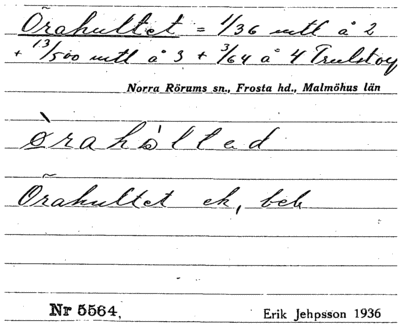 Örahultet = 1/36 mtl å 2
+ 13/500 mtl å 3 + 3/64 å 4 Trulstorp
Norra Rörums sn., Frosta hd., Malmöhus län
Òrahòlted
Örahultet ek, beb
Nr 5564.
Erik Jehpsson 1936